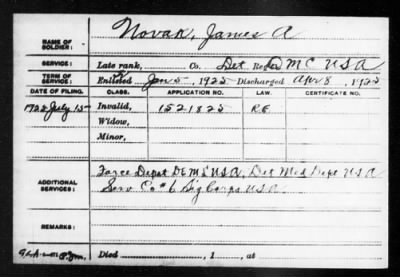 NAME OF SOLDIER: Novak, James A
SERVICE: Late rank, Co. Det. Reg't D M C U S A
TERM OF SERVICE: Enlisted Jan 5 - , 1925 Discharged Apr 8 , 1925
DATE OF FILING. CLASS. APPLICATION NO. LAW. CERTIFICATE NO.
1925 July 15 Invalid, 1521825 R.E.
Widow,
Minor,
ADDITIONAL SERVICES: Force Depot DEML USA, Det Med Dept USA
Serv Co #6 Sig Corps USA
REMARKS:
Died , 1 , at